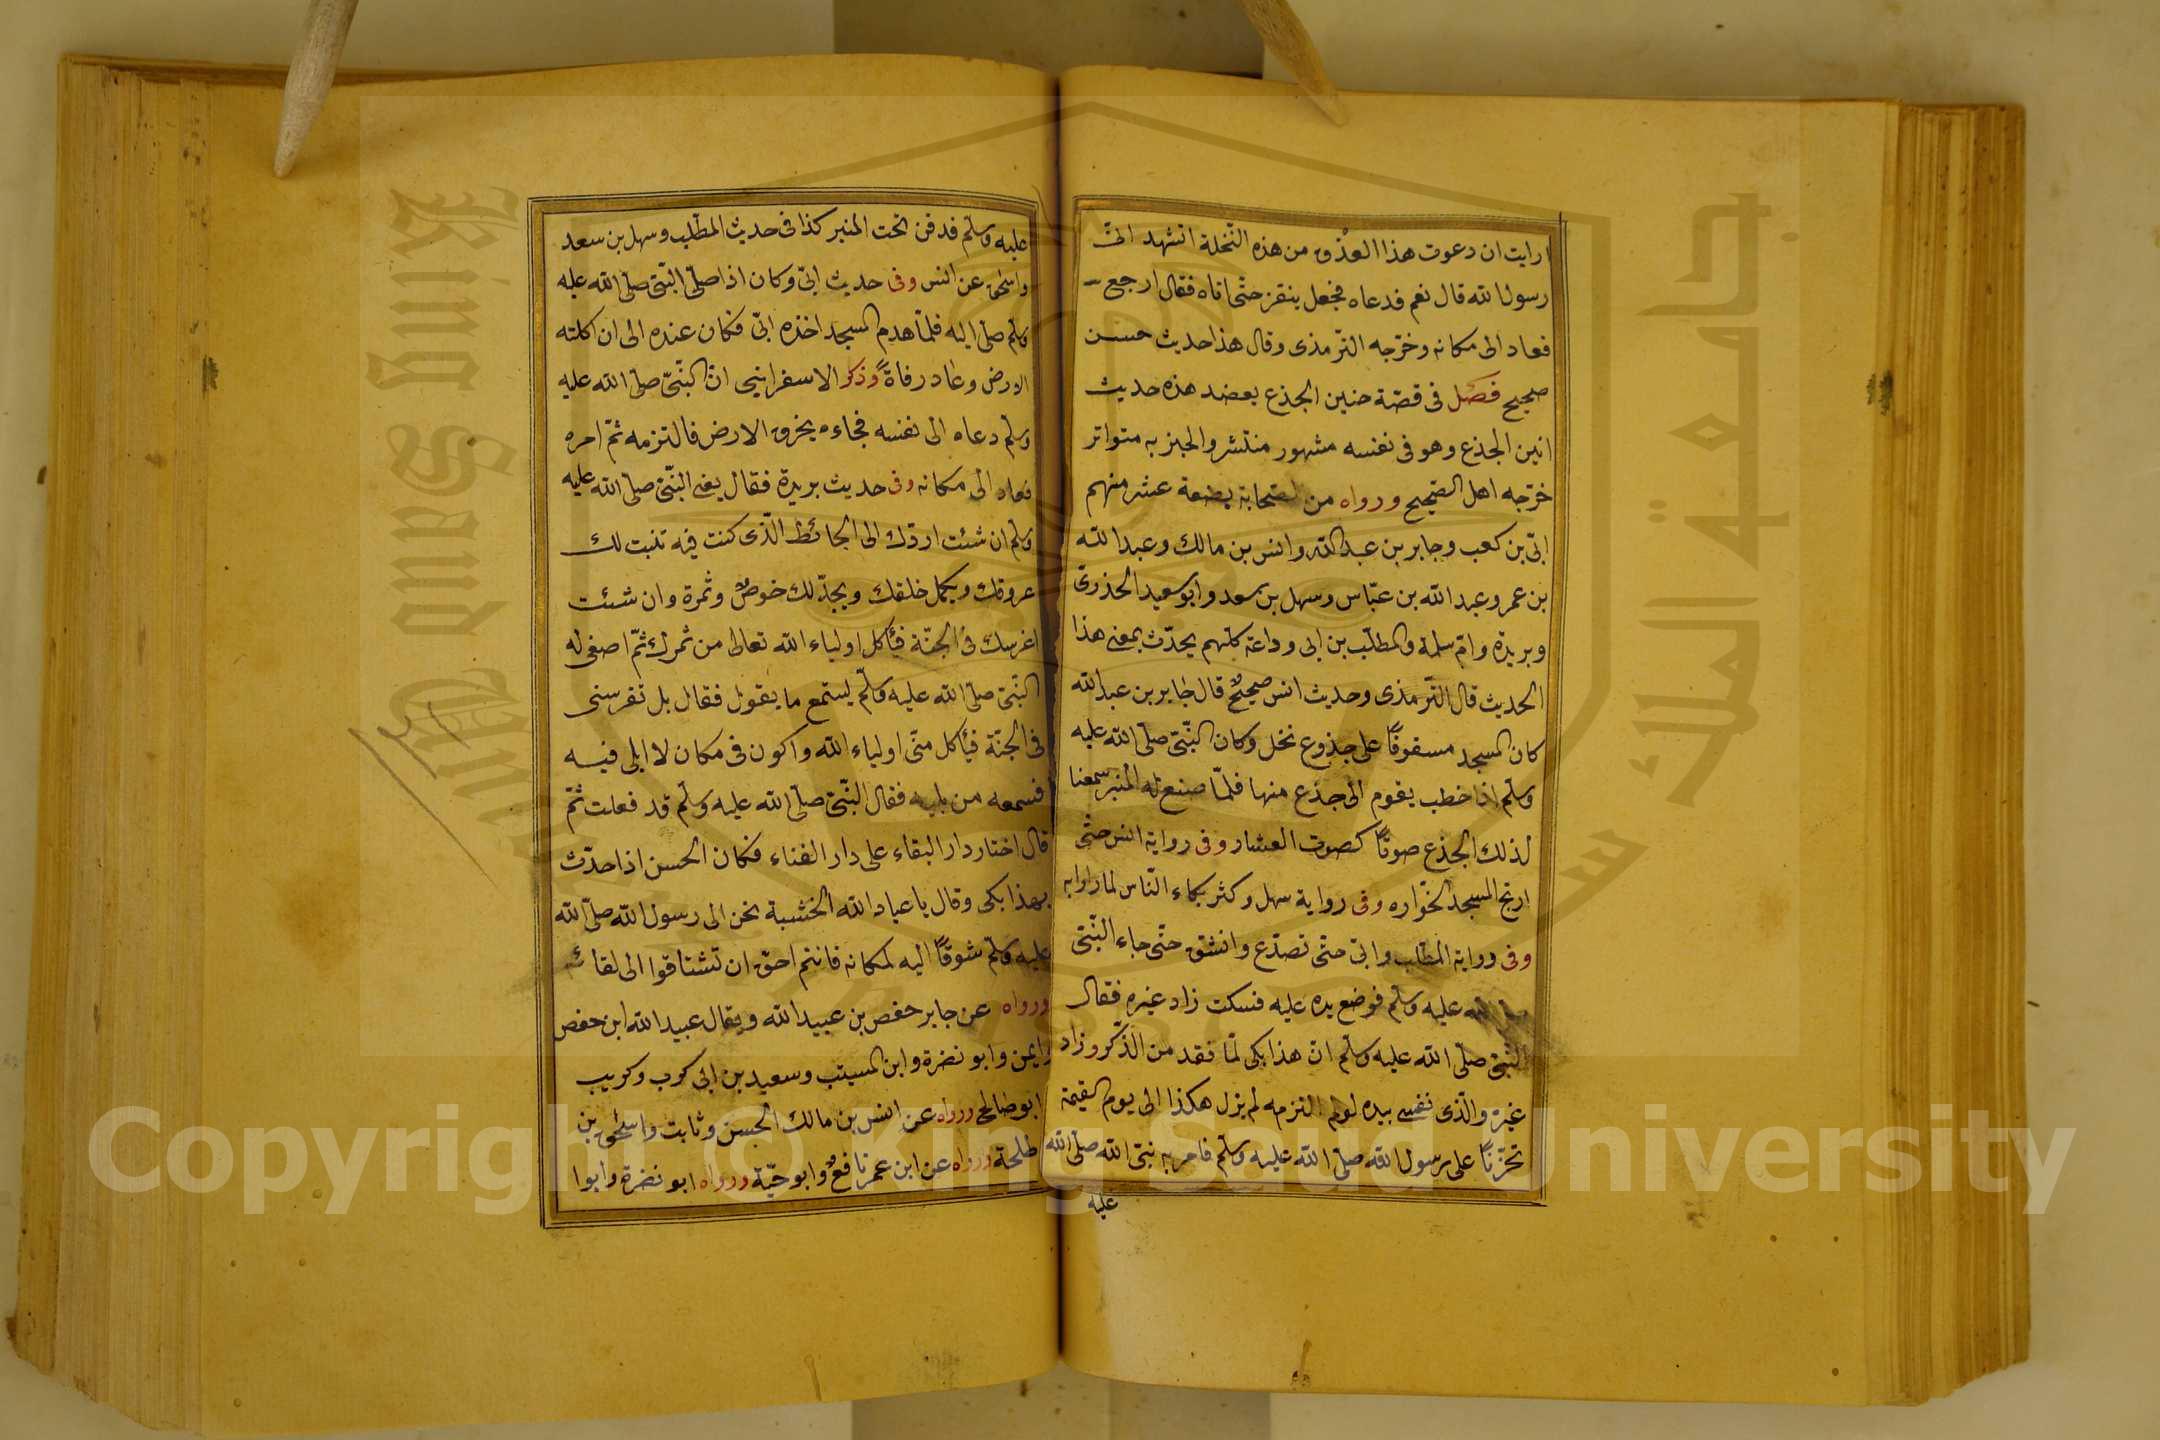 ارايت ان دعوت هذا العذق من هذه النّخلة اتشهد انّى
رسول الله قال نعم فدعاه فجعل ينقز حتّى اتاه فقال ارجع
فعاد الى مكانه وخرّجه الترمذى وقال هذا حديث حسن
صحيح فصل فى قصّة حنين الجذع يعضد هذه حديث
انين الجذع وهو فى نفسه مشهور منتشر والخبر به متواتر
خرّجه اهل الصّحيح ورواه من الصّحابة بضعة عشر منهم
ابىّ بن كعب وجابر بن عبد الله وانس بن مالك وعبد الله
بن عمر وعبد الله بن عبّاس وسهل بن سعد وابو سعيد الخدرىّ
وبريدة وامّ سلمة والمطّلب بن ابى وداعة كلّهم يحدّث بمعنى هذا
الحديث قال التّرمذى وحديث انس صحيحٌ قال جابر بن عبد الله
كان المسجد مسقوفًا على جذوع نخل وكان النّبىّ صلّى الله عليه
وسلّم اذا خطب يقوم الى جذع منها فلمّا صنع له المنبر سمعنا
لذلك الجذع صوتًا كصوت العشار وفى رواية انس حتّى
ارتجّ المسجد لخواره وفى رواية سهل وكثر بكاء النّاس لما راوا به
وفى رواية المطّلب وابىّ حتّى تصدّع وانشقّ حتّى جاء النّبىّ
صلى الله عليه وسلّم فوضع يده عليه فسكت زاد غيره فقال
النّبىّ صلّى الله عليه وسلّم انّ هذا بكى لمّا فقد من الذّكر وزاد
غيره والّذى نفسى بيده لو لم التزمه لم يزل هكذا الى يوم القيمة
تحزّنًا على رسول الله صلّى الله عليه وسلّم فامر به نبىّ الله صلّى الله
عليه
عليه وسلّم فدفن تحت المنبر كذا فى حديث المطّلب وسهل بن سعد
واسحٰق عن انس وفى حديث ابىّ وكان اذا صلّى النّبىّ صلّى الله عليه
وسلّم صلّى اليه فلمّا هدم المسجد اخذه ابىّ فكان عنده الى ان اكلته
الارض وعاد رفاةً وذكر الاسفراينى انّ النّبىّ صلّى الله عليه
وسلّم دعاه الى نفسه فجاءه يخرق الارض فالتزمه ثمّ امره
فعاد الى مكانه وفى حديث بريدة فقال يعنى النّبىّ صلّى الله عليه
وسلّم ان شئت اردّك الى الحائط الّذى كنت فيه تنبت لك
عروقك ويكمل خلقك ويجدّ لك خوصٌ وثمرة وان شئت
اغرسك فى الجنّة فيأكل اولياء الله تعالى من ثمرك ثمّ اصغى له
النّبىّ صلّى الله عليه وسلّم يستمع ما يقول فقال بل تغرسنى
فى الجنّة فيأكل منّى اولياء الله واكون فى مكان لا ابلى فيه
فسمعه من يليه فقال النّبىّ صلّى الله عليه وسلّم قد فعلت ثمّ
قال اختار دار البقاء على دار الفناء فكان الحسن اذا حدّث
بهذا بكى وقال يا عباد الله الخشبة تحن الى رسول الله صلّى الله
عليه وسلّم شوقًا اليه لمكانه فانتم احقّ ان تشتاقوا الى لقائه
ورواه عن جابر حفص بن عبيد الله ويقال عبيد الله ابن حفص
وايمن وابو نضرة وابن المسيّب وسعيد بن ابى كرب وكريب
ابو صالح ورواه عن انس بن مالك الحسن وثابت واسحٰق بن
طلحة ورواه عن ابن عمر نافعٌ وابو حيّة ورواه ابو نضرة وابوا
King Saud University
جامعة الملك سعود
1957
Copyright © King Saud University